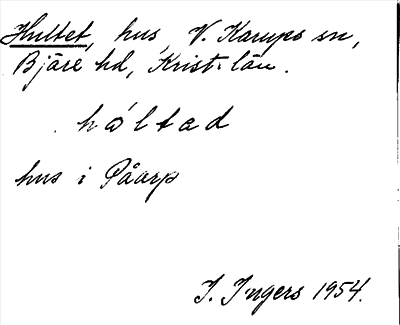 Hultet, hus, V. Karups sn,
Bjäre hd, Krist. län.
hóltad
hus i Påarp
I. Ingers 1954.